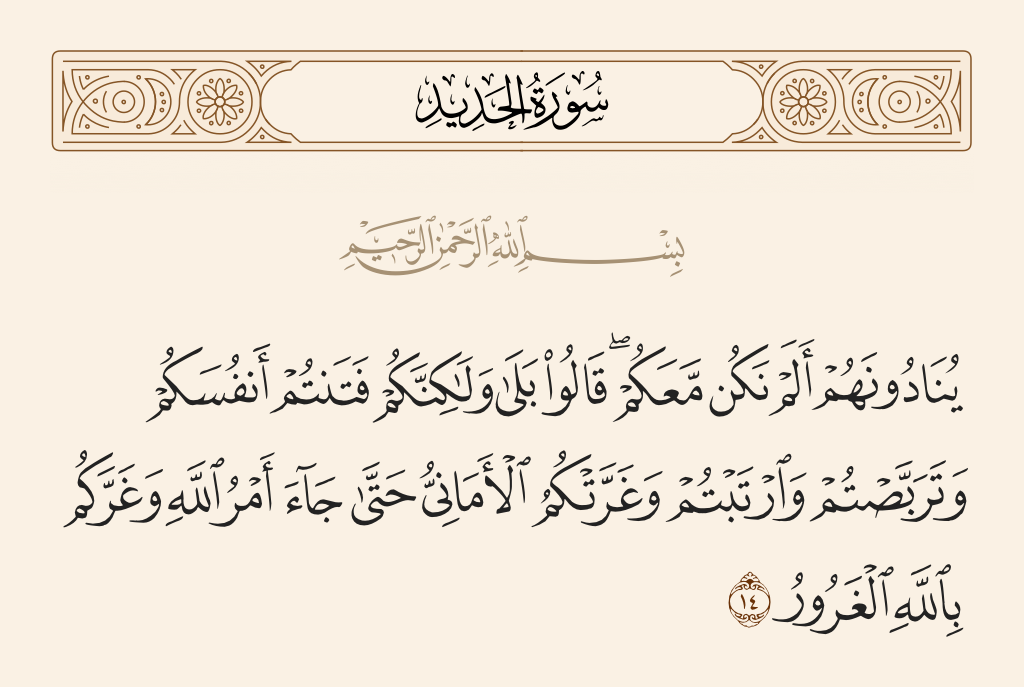 سُورَةُ الحَدِيدِ
بِسْمِ ٱللَّهِ ٱلرَّحْمَٰنِ ٱلرَّحِيمِ
يُنَادُونَهُمْ أَلَمْ نَكُن مَّعَكُمْ ۖ قَالُوا۟ بَلَىٰ وَلَٰكِنَّكُمْ فَتَنتُمْ أَنفُسَكُمْ
وَتَرَبَّصْتُمْ وَٱرْتَبْتُمْ وَغَرَّتْكُمُ ٱلْأَمَانِىُّ حَتَّىٰ جَآءَ أَمْرُ ٱللَّهِ وَغَرَّكُم
بِٱللَّهِ ٱلْغَرُورُ ١٤